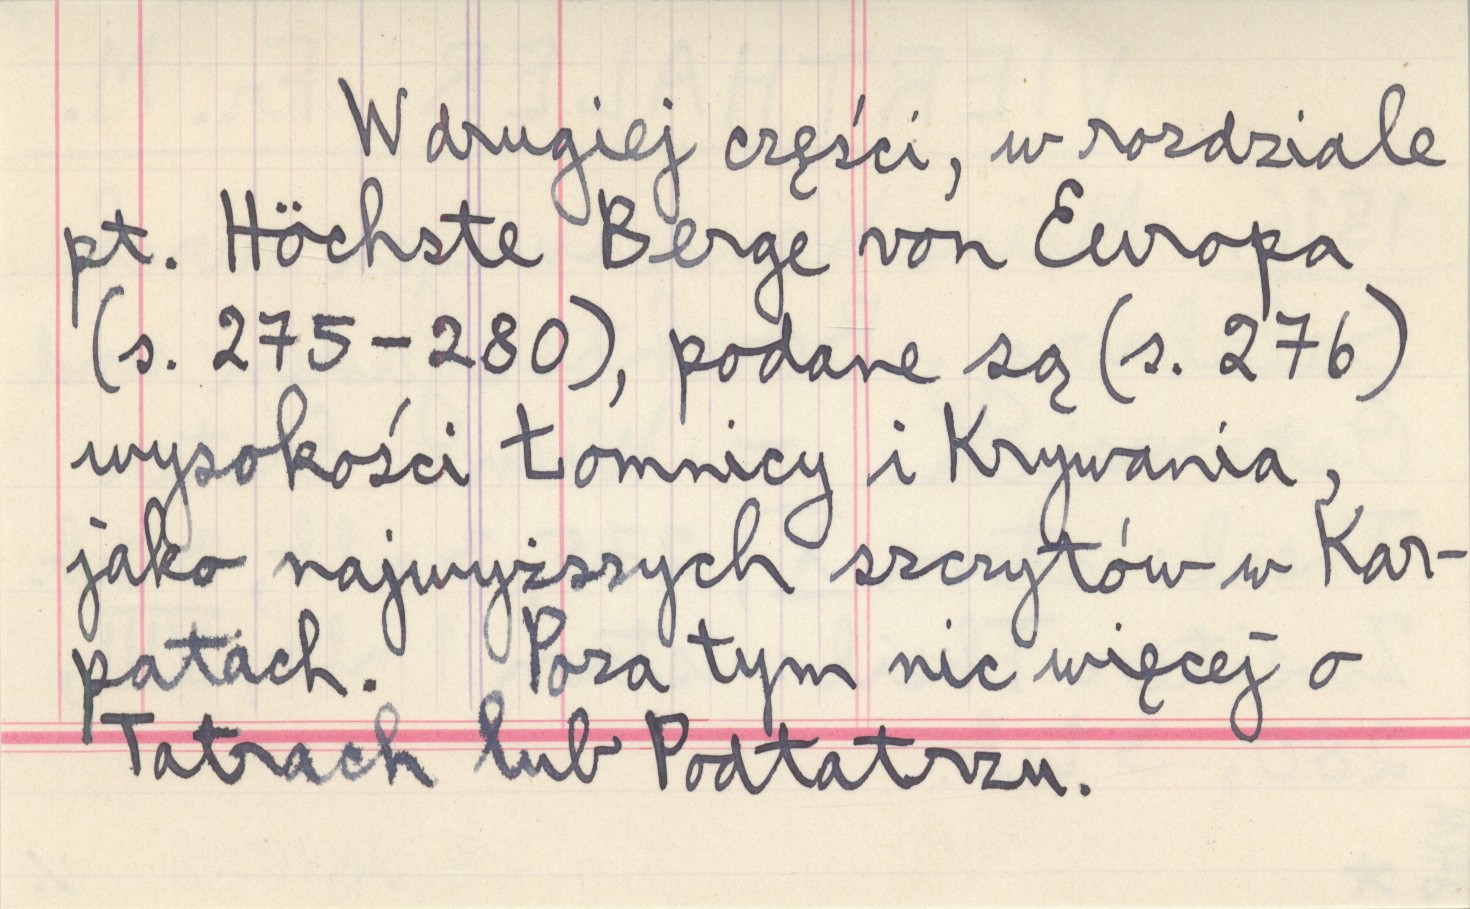 W drugiej części, w rozdziale
pt. Höchste Berge von Europa
(s. 275-280), podane są (s. 276)
wysokości Łomnicy i Krywania,
jako najwyższych szczytów w Kar-
patach. Poza tym nic więcej o
Tatrach lub Podtatrzu.